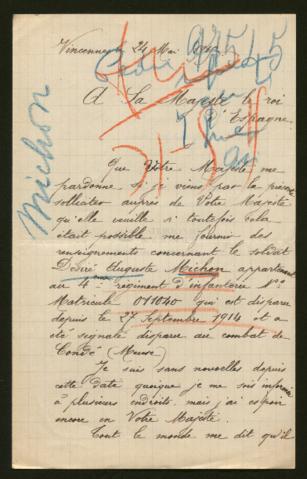 Vincennes, 24 Mai
A Sa Majesté le roi
d'Espagne.
Michon
Que Votre Majesté me
pardonne si je viens par la
solliciter auprès de Votre Majesté
qu'elle veuille si toutefois cela
était possible me fournir des
renseignements concernant le soldat
Désiré Auguste Michon appartenant
au 4e régiment d'infanterie No
Matricule 011040 qui est disparu
depuis le 27 Septembre 1914 et a
été signalé disparu au combat de
Condé (Meuse)
Je suis sans nouvelles depuis
cette date quoique je me sois informée
à plusieurs endroits. mais j'ai espoir
encore en Votre Majesté.
Tout le monde me dit qu'il